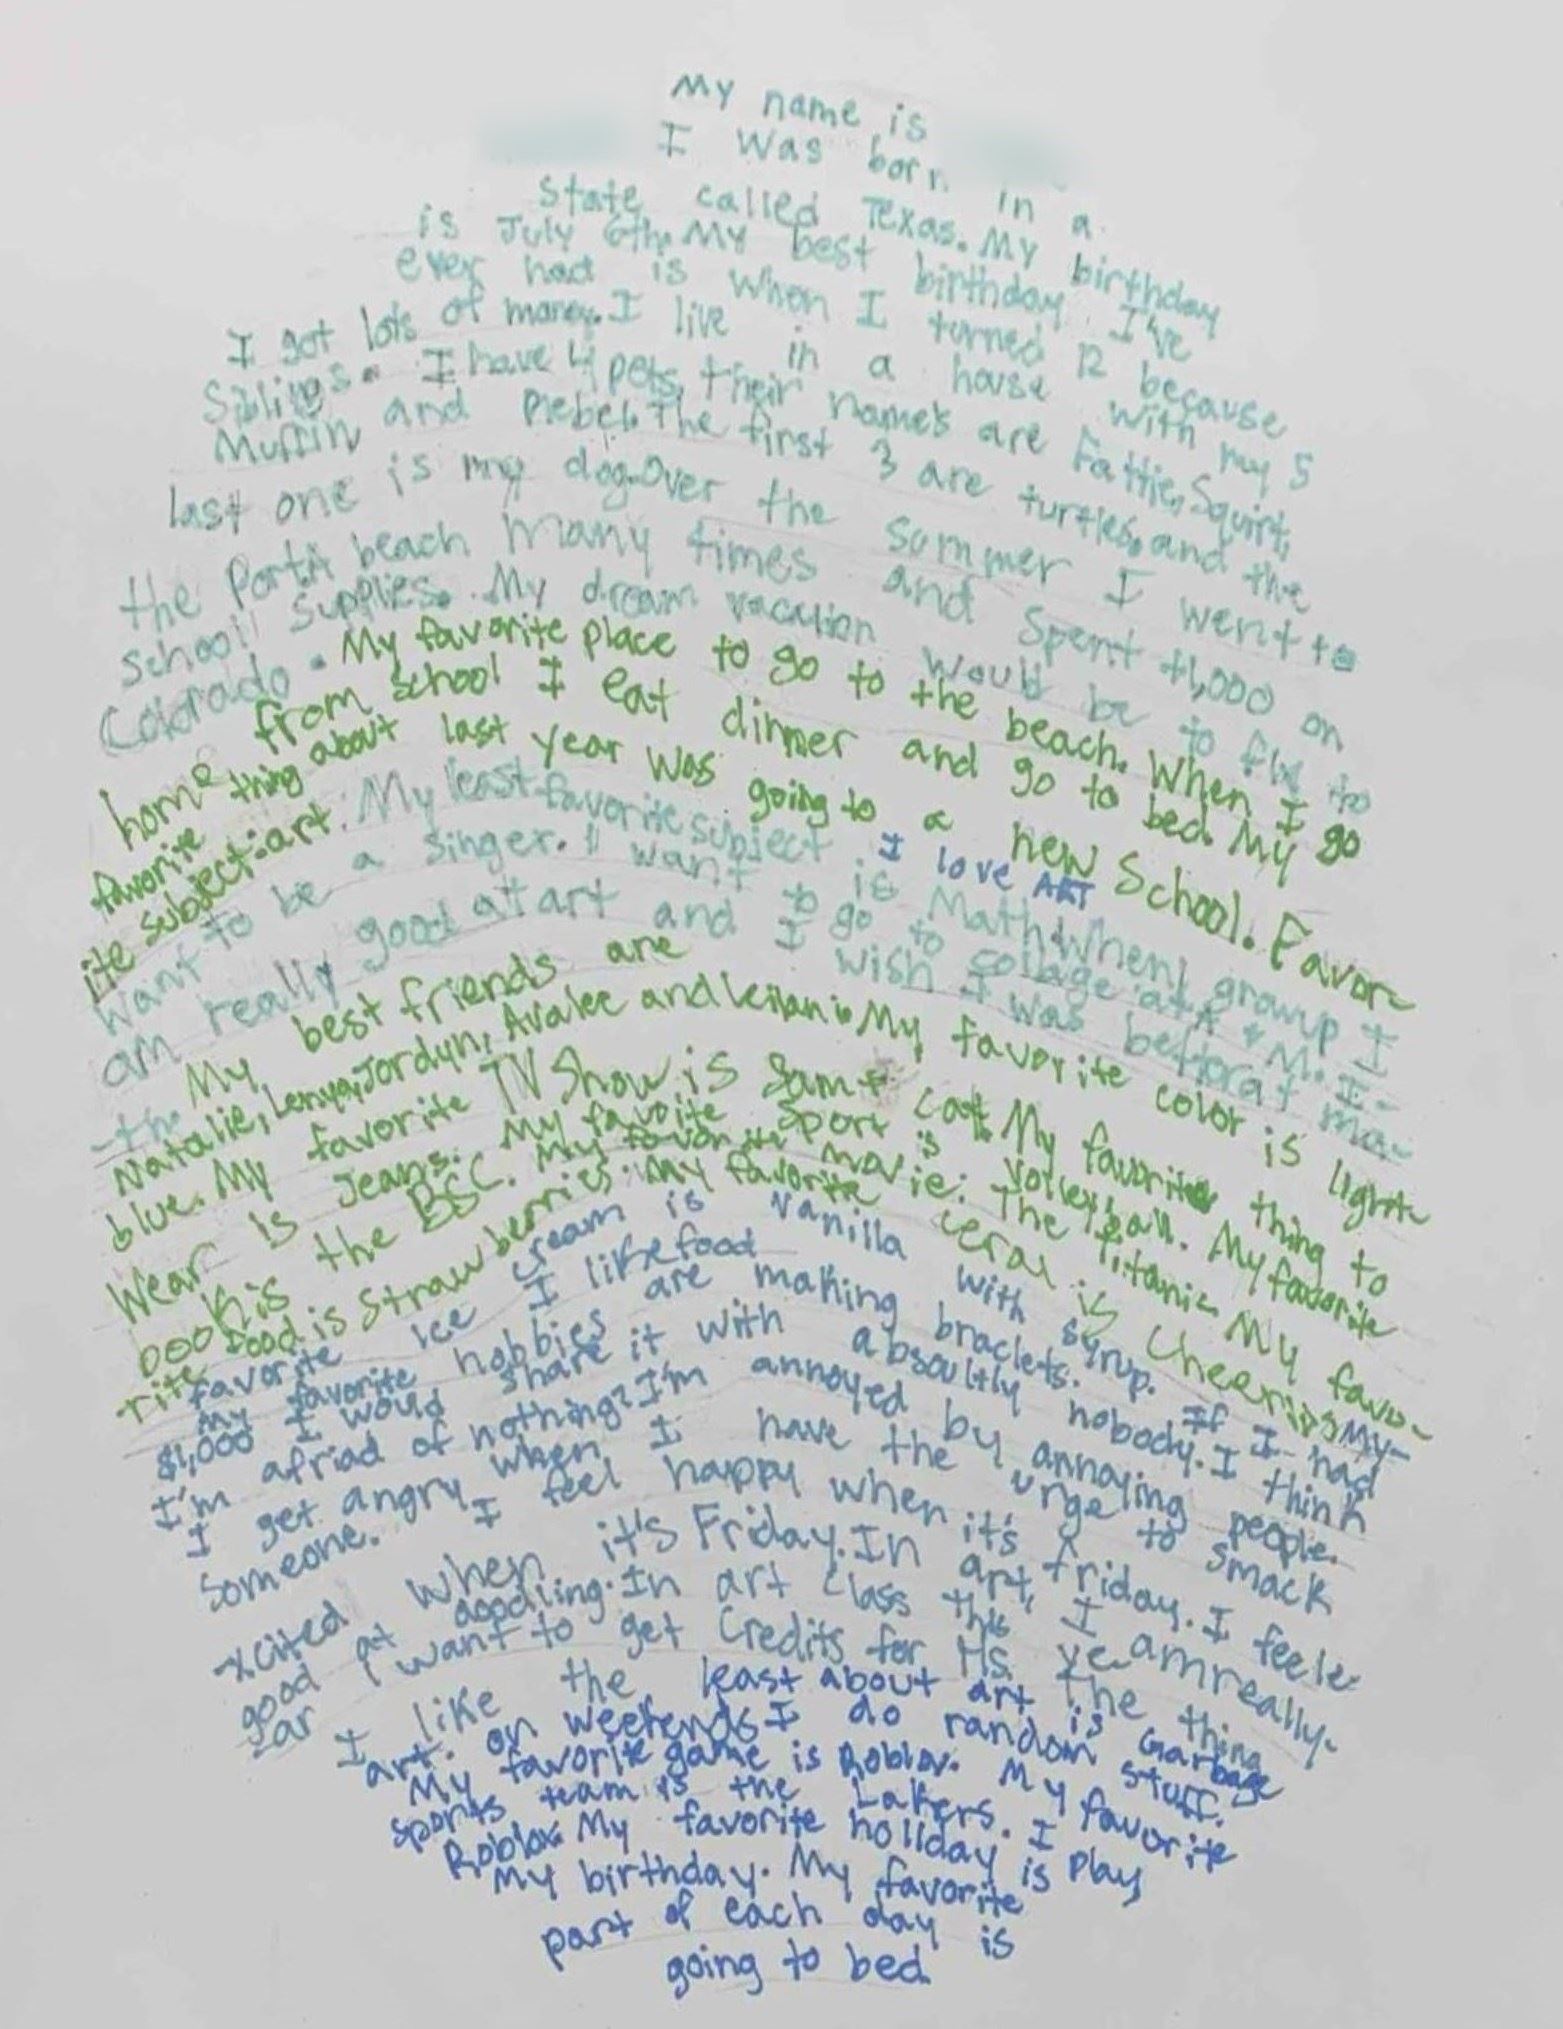 My name is
I was born in a
state called Texas. My birthday
is July 6th. My best birthday I've
ever had is when I turned 12 because
I got lots of money. I live in a house with my 5
Siblings. I have 4 pets, their name's are Fattie, Squirt,
Muffin and Rebel. The first 3 are turtles, and the
last one is my dog. Over the summer I went to
the Port A beach many times and spent $1,000 on
School Supplies. My dream vacation would be to fly to
Colorado. My favorite place to go to the beach. When I go
home from school I eat dinner and go to bed. My
favorite thing about last year was going to a new School. Favor-
ite subject: art. My least favorite subject is Math. When I grow up I
I love ART
want to be a singer. I want to go to collage at A & M. I-
am really good at art and I wish I was better at ma-
-th
My best friends are
Natalie, Leny, Jordyn, Avalee and Leilani. My favorite color is light-
blue. My favorite TV Show is Sam & Cat. My favorite thing to
wear is Jeans. My favoite sport is volleyball. My favorite
book is the BSC. My favorite movie: The Titanic. My favo-
rite food is Strawberries. My favorite ceral is Cheerios. My-
favorite ice cream is vanilla with syrup. If I had
I like food
My favorite hobbies are making braclets.
$1,000 I would share it with absoultly nobody. I think
I'm afriad of nothing? I'm annoyed by annoying people.
I get angry when I have the urge to smack
someone. I feel happy when it's friday. I feel e-
-xcited when it's Friday. In art, I am really-
good at doodling. In art class this ye-
-ar I want to get Credits for Hs. The thing
I like the least about art is Garbage
art. on weekends I do random stuff.
My favorite game is Roblox. My favorite
sports team is the Lakers. I play
Roblox. My favorite holiday is
My birthday. My favorite
part of each day is
going to bed